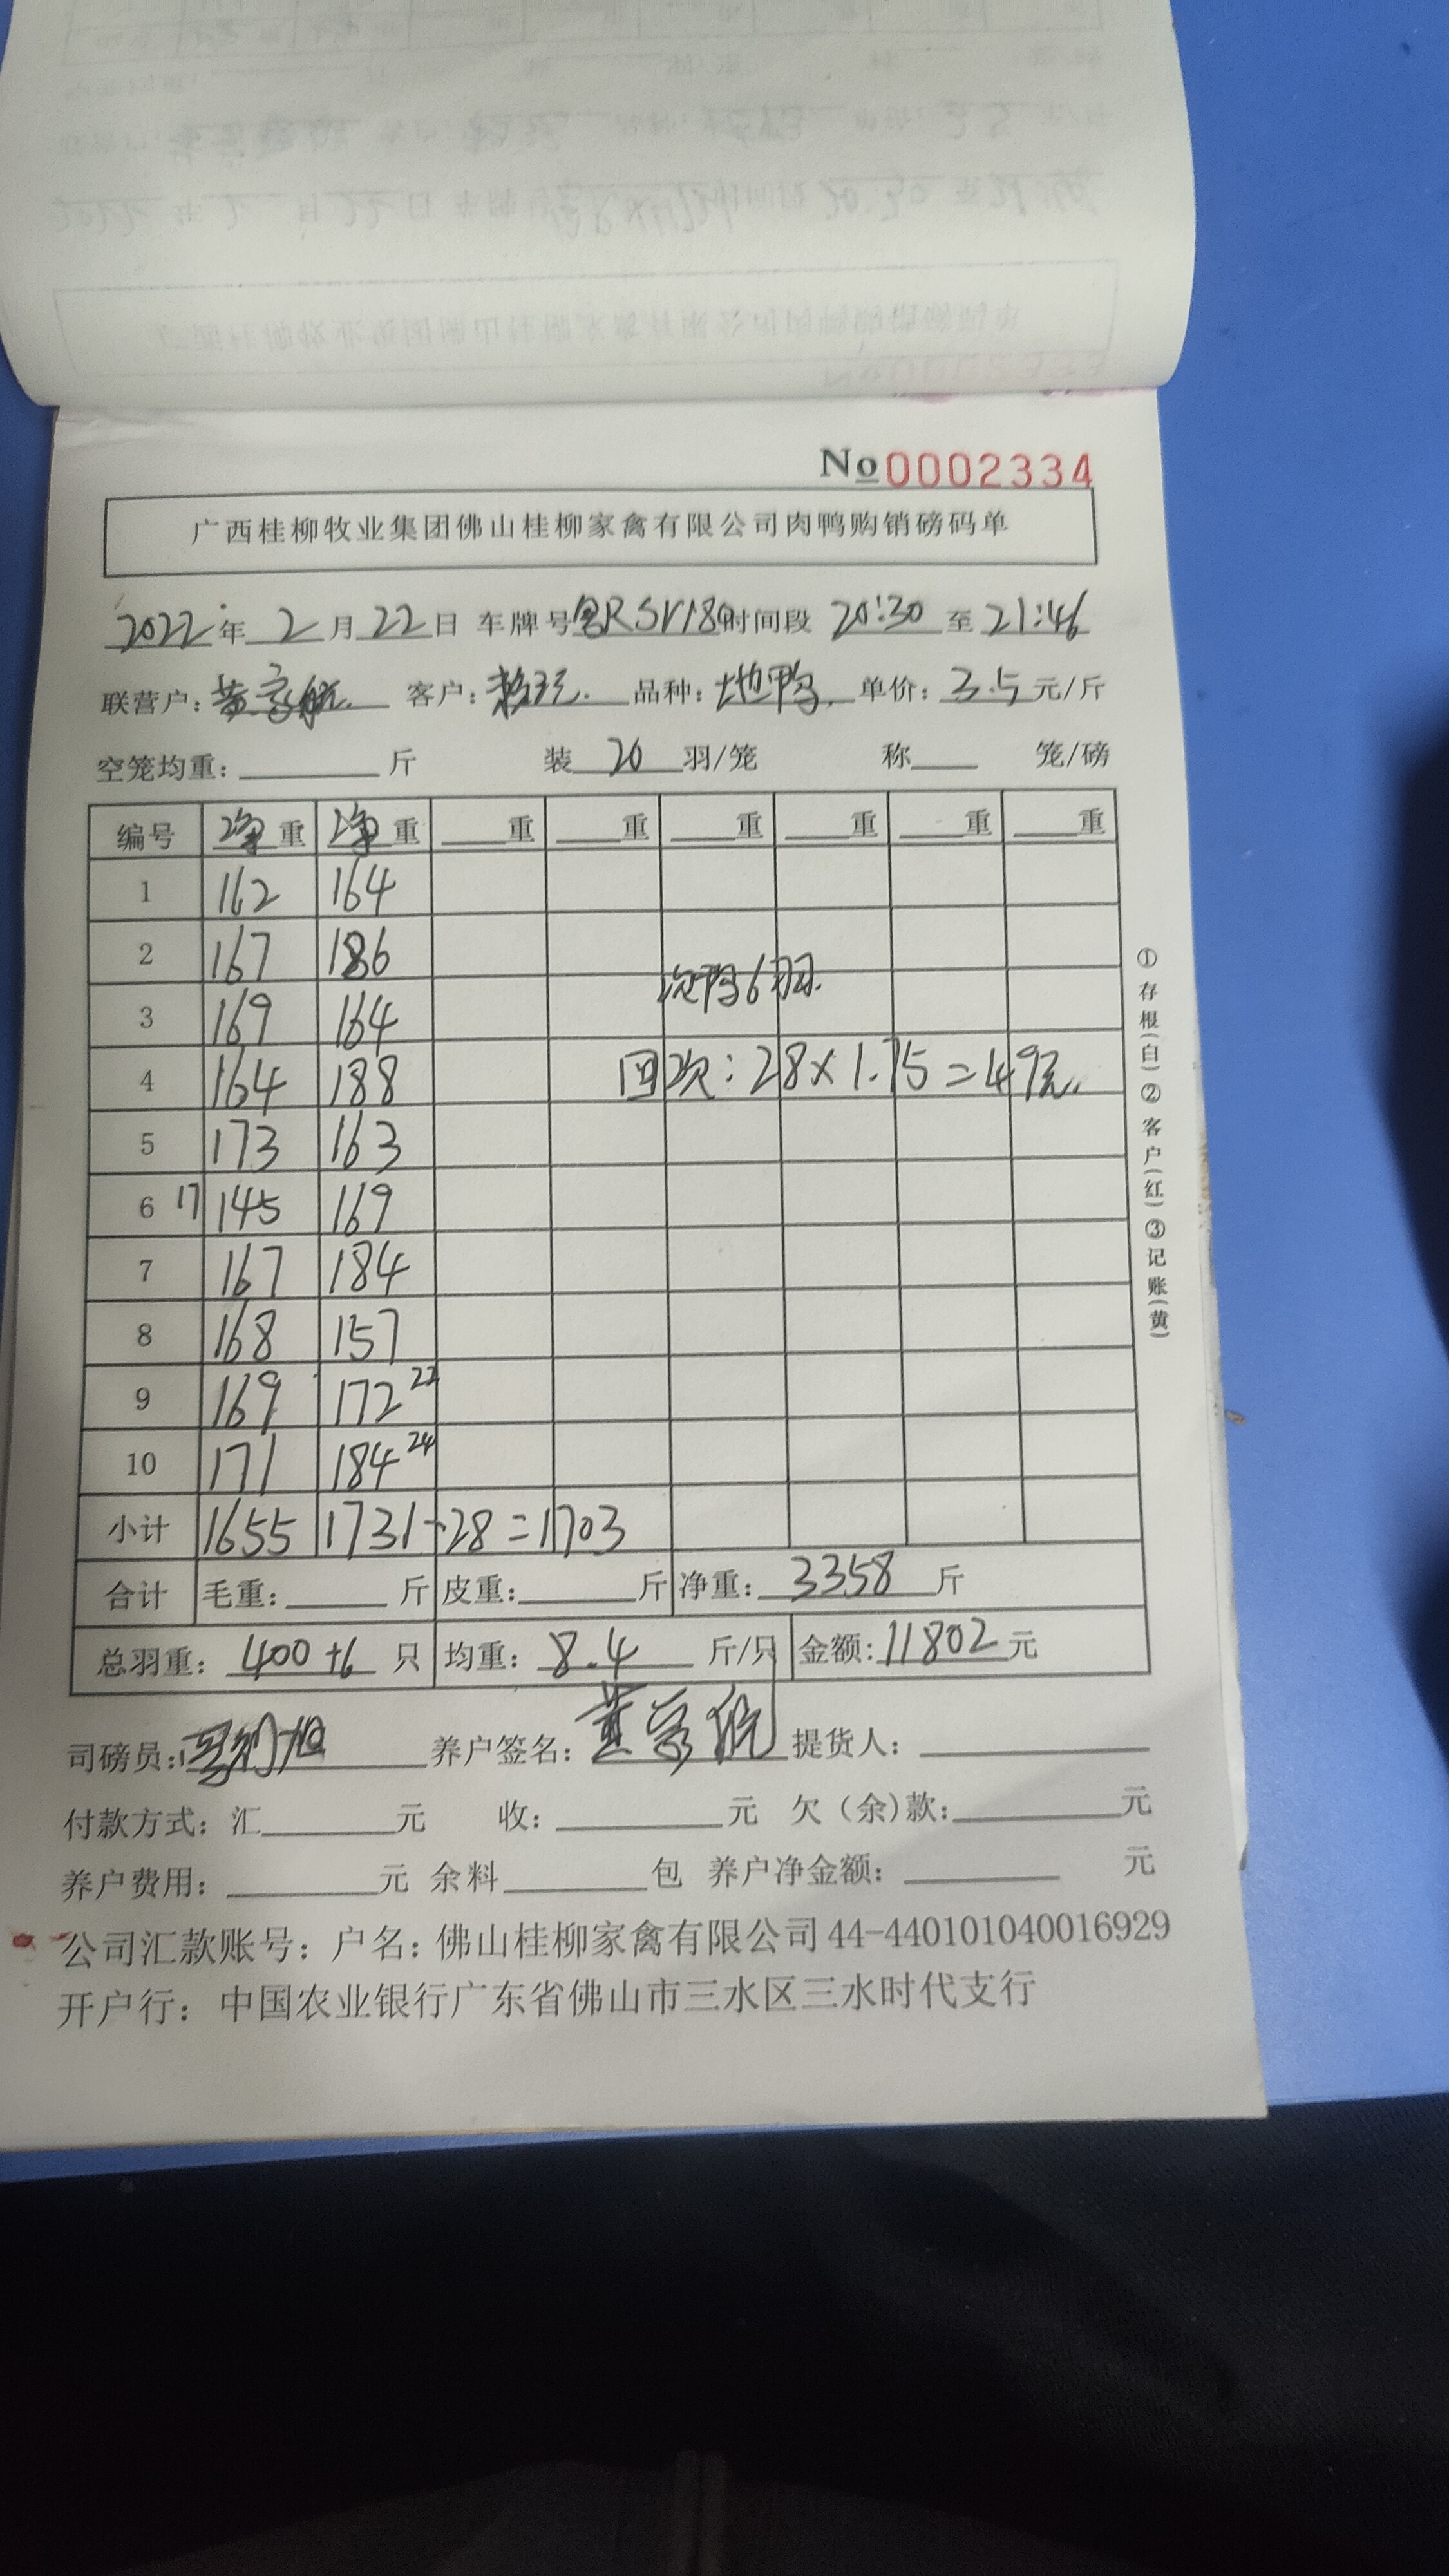 No 0002334
广西桂柳牧业集团佛山桂柳家禽有限公司肉鸭购销磅码单
2022年2月22日 车牌号 时间段 20:30 至 21:46
联营户: 客户: 品种: 地鸭 单价: 3.5 元/斤
空笼均重: 斤 装 20 羽/笼 称 笼/磅
编号 净重 净重 重 重 重 重 重 重
1 162 164
2 167 186
次鸭6羽.
3 169 164
4 164 188 回次: 28×1.75=49元.
5 173 163
6 17 145 169
7 167 184
8 168 157
9 169 172 22
10 171 184 24
小计 1655 1731-28=1703
合计 毛重: 斤 皮重: 斤 净重: 3358 斤
总羽重: 400+6 只 均重: 8.4 斤/只 金额: 11802 元
司磅员: 养户签名: 提货人:
付款方式: 汇 元 收: 元 欠(余)款: 元
养户费用: 元 余料 包 养户净金额: 元
公司汇款账号: 户名: 佛山桂柳家禽有限公司 44-440101040016929
开户行: 中国农业银行广东省佛山市三水区三水时代支行
①存根(白)②客户(红)③记账(黄)